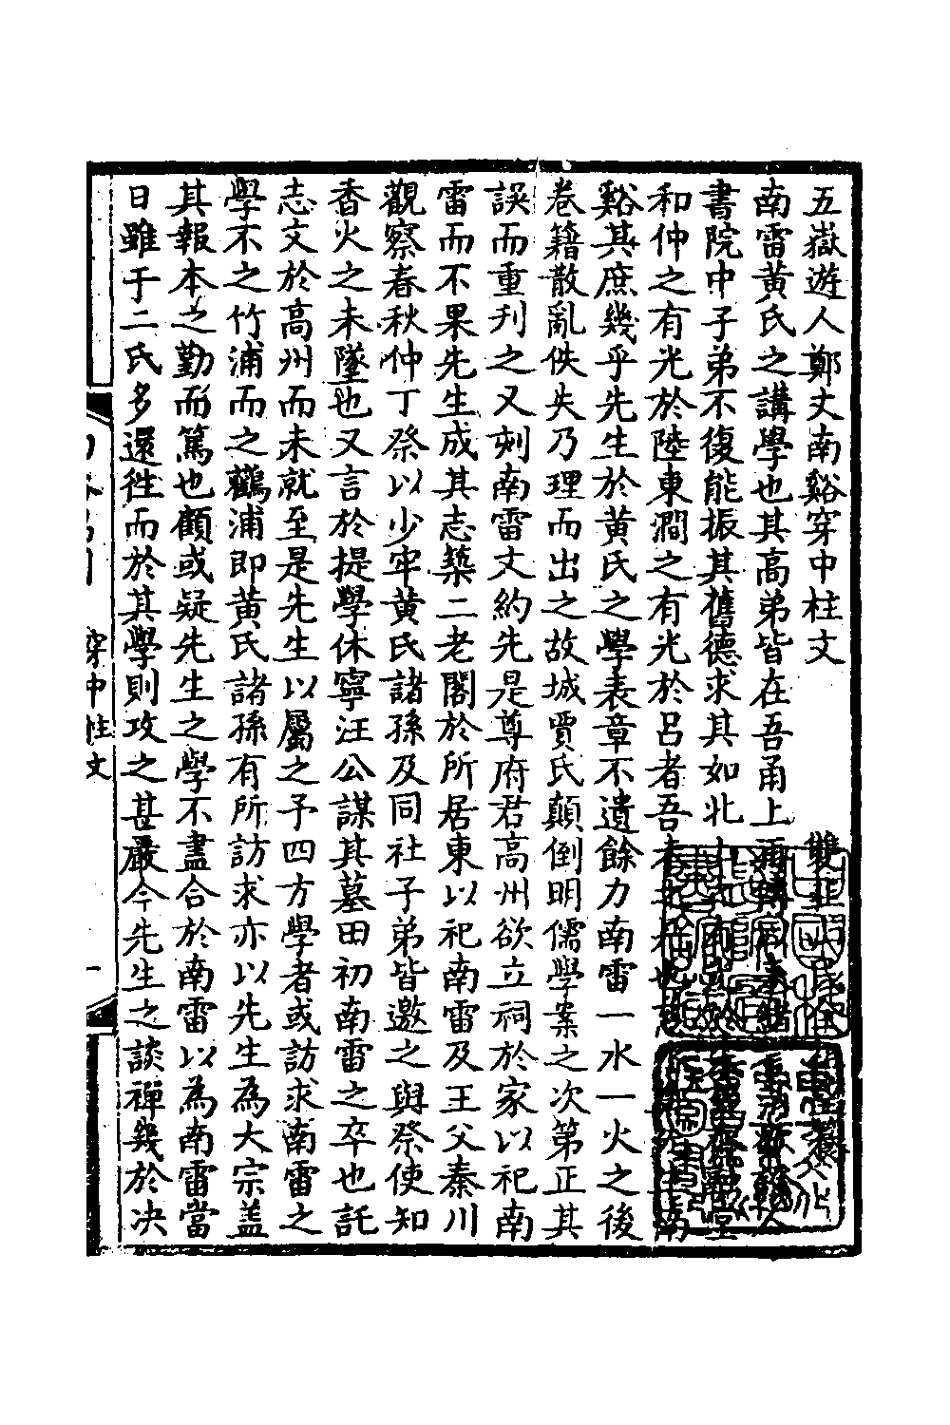 五嶽遊人鄭丈南谿穿中柱文 雙
南雷黃氏之講學也其高弟皆在吾甬上
書院中子弟不復能振其舊德求其如北
和仲之有光於陸東澗之有光於呂者吾
谿其庶幾乎先生於黃氏之學表章不遺餘力南雷一水一火之後
卷籍散亂佚失乃理而出之故城賈氏顛倒明儒學案之次第正其
誤而重刋之又刺南雷文約先是尊府君高州欲立祠於家以祀南
雷而不果先生成其志築二老閣於所居東以祀南雷及王父秦川
觀察春秋仲丁祭以少牢黃氏諸孫及同社子弟皆邀之與祭使知
香火之未墜也又言於提學休寧汪公謀其墓田初南雷之卒也託
志文於高州而未就至是先生以屬之予四方學者或訪求南雷之
學不之竹浦而之鸛浦即黃氏諸孫有所訪求亦以先生為大宗盖
其報本之勤而篤也顧或疑先生之學不盡合於南雷以為南雷當
日雖于二氏多還徃而於其學則攻之甚嚴今先生之談禪幾於决
穿中柱文
一